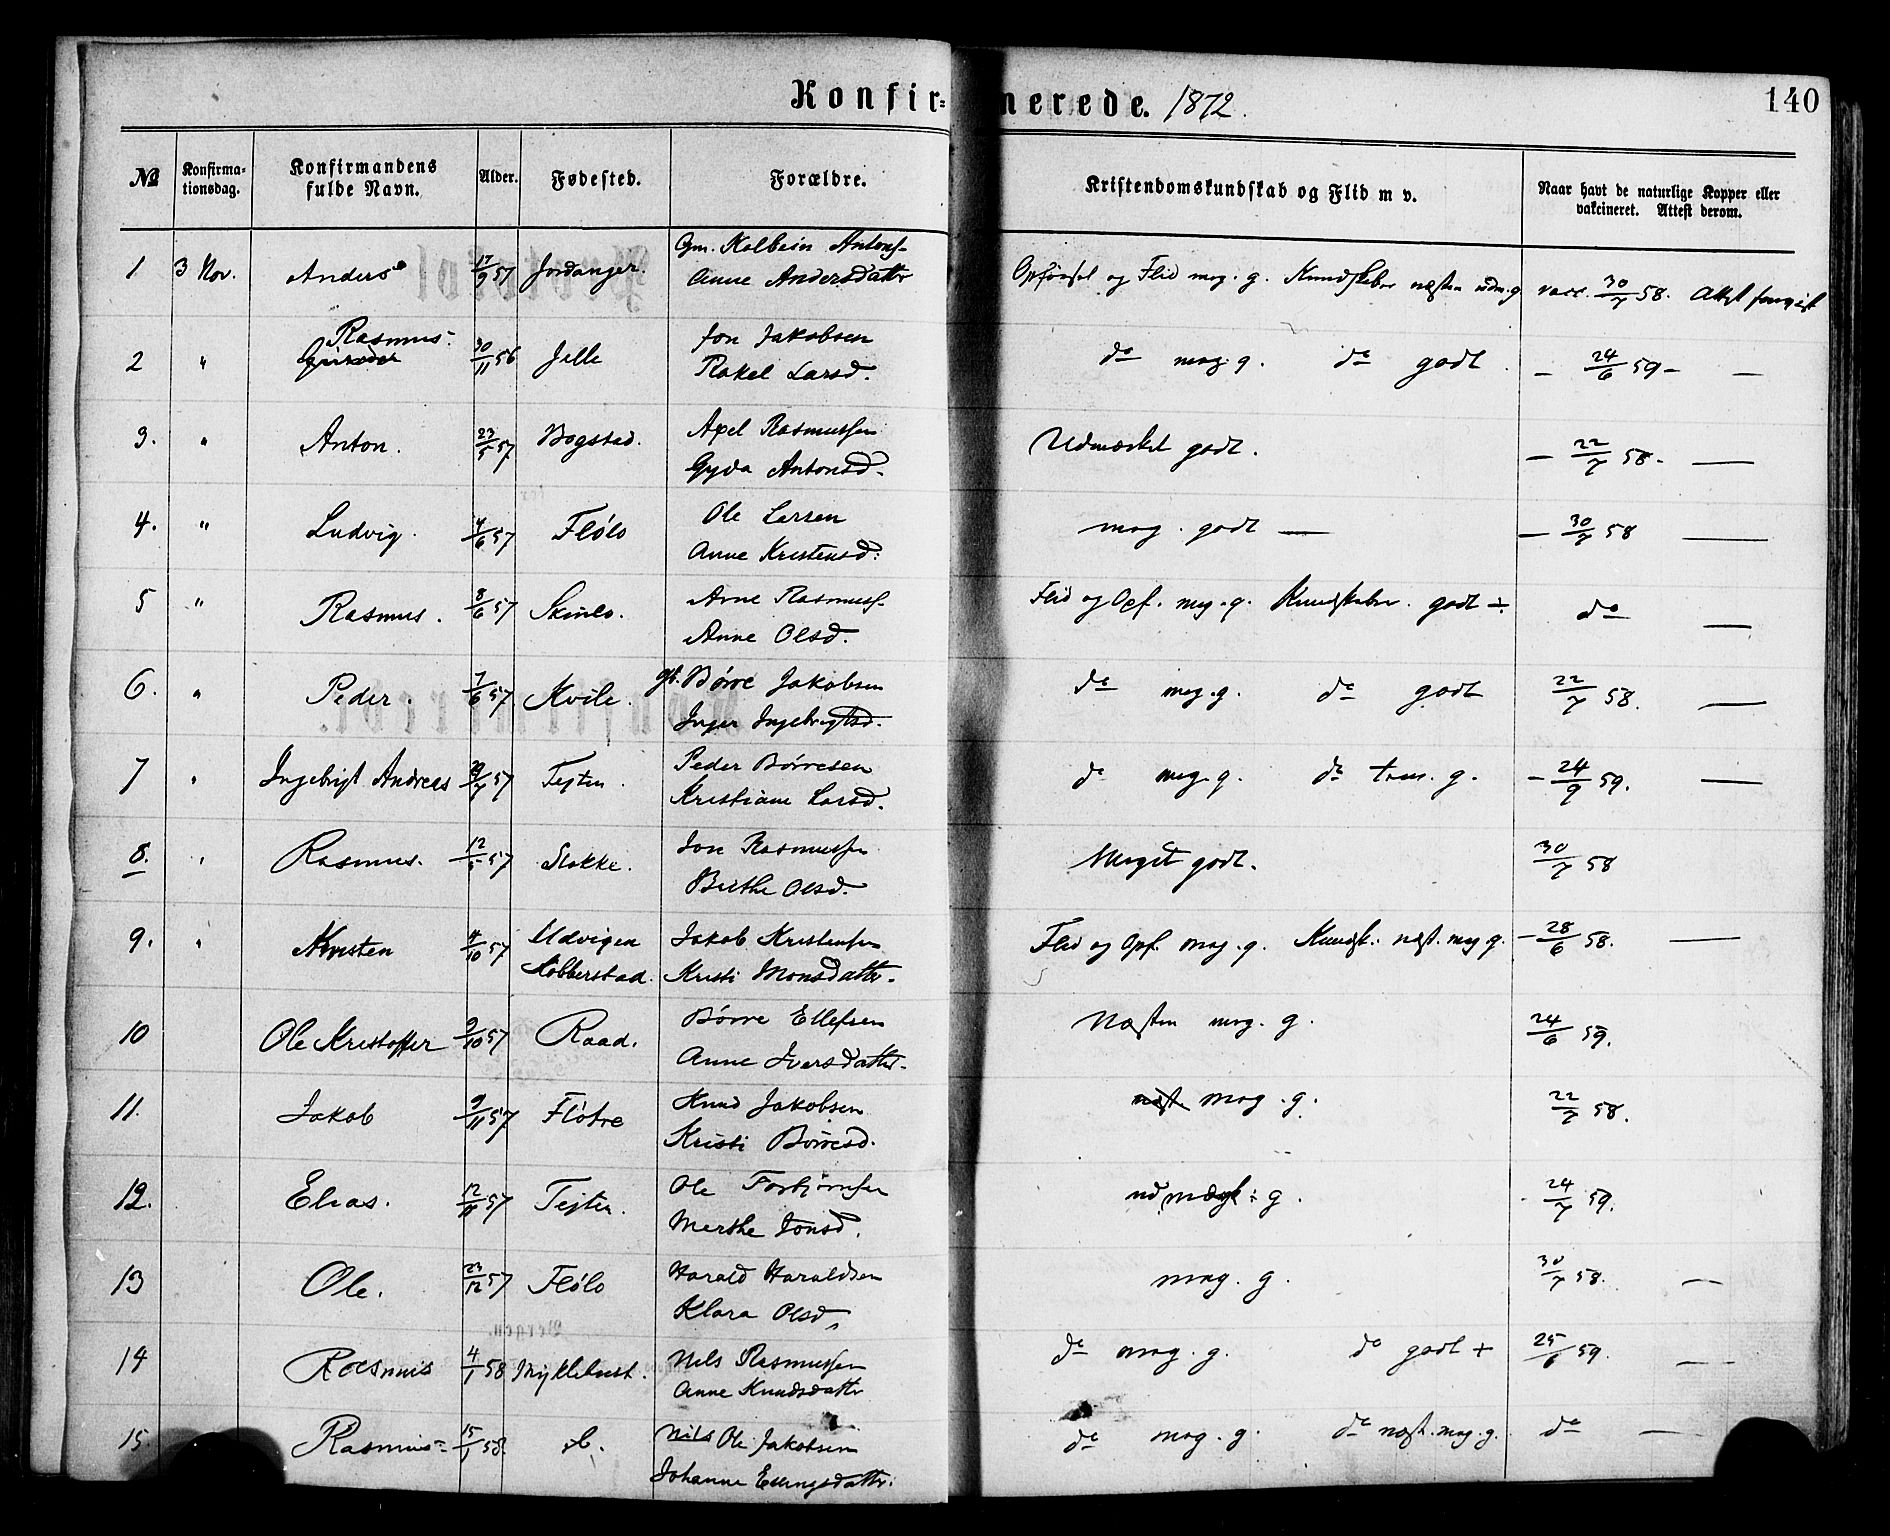 Konfirmerede. 1872.
140
№ Konfirmationsdag. Konfirmandens fulde Navn. Alder. Fødested. Forældre. Kristendomskundskab og Flid m v. Naar havt de naturlige Kopper eller vakcineret. Attest derom.
1 3 Nov. Anders 17/9 57 Jordanger. Gm. Kolbein Antons- Opførsel og Flid meg. g. Kundskaber næsten udm. g vacc. 30/7 58. Attest
Anne Andersdatter
2 " Rasmus 30/11 56 Jelle Jon Jakobsen do meg. g. do godt. – 24/6 59 – —
Rakel Larsd.
3. " Anton. 23/5 57 Bogstad. Axel Rasmussen Udmærket godt. – 22/7 58. —
Gyda Antonsd.
4. " Ludvig. 4/6 57 Flølo Ole Larsen meg. godt — – 30/7 58 —
Anne Kristensd.
5 " Rasmus. 8/6 57 Arne Rasmuss- Flid og Opf. meg. g. Kundskaber. godt ÷ do —
Anne Olsd.
6. " Peder. 7/6 57 Kvile. gb. Børre Jakobsen do meg. g. do godt 22/7 58. —
Inger Ingebrigtsd.
7 " Ingebrigt Andreas 57 Peder Børresen do meg. g. do tem. g. – 24/9 59. —
Kristiane Larsd.
8. " Rasmus. 12/5 57 Stokke. Jon Rasmussen Meget godt. 30/7 58
Birthe Olsd.
9. " Kristen 4/10 57 Udvigen Jakob Kristensen Flid og Opf. meg. g. Kundsk. næst. meg g. – 28/6 58. —
Hobberstad. Kristi Monsdatter.
10 Ole Kristoffer 9/10 57 Raad. Børre Ellefsen Næsten meg. g. 24/6 59.
Anne Iversdatter.
11. Jakob 9/11 57 Fløtre Knud Jakobsen næst. meg. g. 22/7 58.
Kristi Børresd.
12. Elias. 12/11 57 Ole Torbjørnsen udmærk: g. 24/7 59.
Merthe Jonsd.
13 Ole. 23/12 57 Flølo Harald Haraldsen meg. g. 30/7 58. —
Klara Olsd.
14 Rasmus 4/1 58 Myklebust. Nils Rasmussen do meg. g. do godt + 25/6 59. —
Anne Knudsdatter
15. Rasmus 15/1 58. Nils Ole Jakobsen do meg. g. do næst. meg. g. do —
Johanne Ellingsdatter.